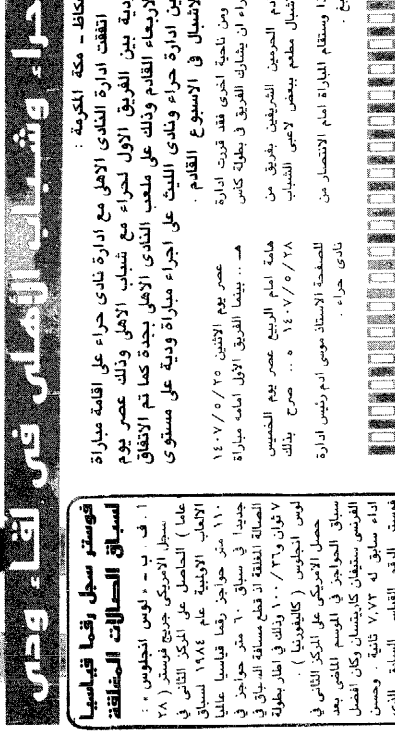 حراء وشباب الأهلى فى لقاء ودى
عكاظ ـ مكة المكرمة :
اتفقت ادارة النادى الاهلى مع ادارة نادى حراء على اقامة مباراة
ودية بين الفريق الاول لحراء مع شباب الاهلى وذلك عصر يوم
الاربعاء القادم وذلك على ملعب النادى الاهلى بجدة كما تم الاتفاق
بين ادارة حراء ونادى الليث على اجراء مباراة ودية على مستوى
الاشبال فى الاسبوع القادم .
ومن ناحية اخرى فقد قررت ادارة
حراء ان يشارك الفريق فى بطولة كاس
خادم الحرمين الشريفين بفريق من
الاشبال مطعم ببعض لاعبى الشباب
هذا وستقام المباراة امام الانتصار من
عصر يوم الاثنين ٢٥ / ٥ / ١٤٠٧
هـ .. بينما الفريق الاول امامه مباراة
هامة امام الربيع عصر يوم الخميس
٢٨ / ٥ / ١٤٠٧ ه .. صرح بذلك
للصفحة الاستاذ موسى ادم رئيس ادارة
نادى حراء .
فوستر سجل رقما قياسيا
لسباق الصالات المغلقة
ا . ف . ب ـ « لوس انجلوس » :
سجل الامريكى جريج فوستر ( ٢٨
عاما ) الحاصل على المركز الثانى فى
الالعاب الاولمبية عام ١٩٨٤ لسباق
١١٠ متر حواجز رقما قياسيا عالميا
جديدا فى سباق ٦٠ متر حواجز فى
الصالة المغلقة اذ قطع مسافة السباق فى
٧ ثوان و ٣٦ / ١٠٠ وذلك فى اطار بطولة
لوس انجلوس ( كاليفورنيا ) .
حصل الامريكى على المركز الثانى فى
سباق الحواجز فى الموسم الماضى بعد
الفرنسى ستيفان كاريستان وكان افضل
اداء سابق له ٧,٧٣ ثانية . وحسن
فوستر الرقم القياسى السابق الذى